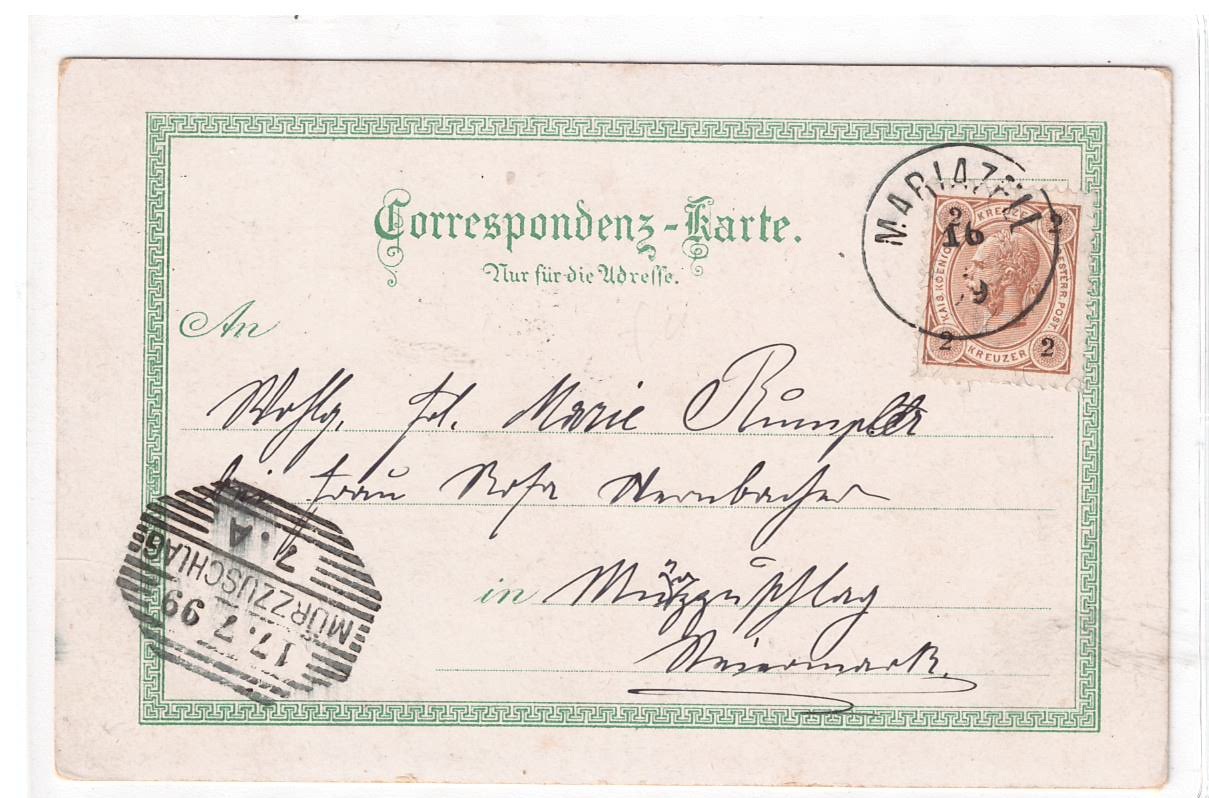 MARIAZELL
16
9
2 KREUZER 2
KAIS. KOENIGL. ÖSTERR. POST.
2 KREUZER 2
Correspondenz-Karte.
Nur für die Adresse.
An
Wohlg. Frl. Marie Rumpler
bei Frau Rosa
in Mürzzuschlag
Steiermark.
MÜRZZUSCHLAG
17.7.99
7.A